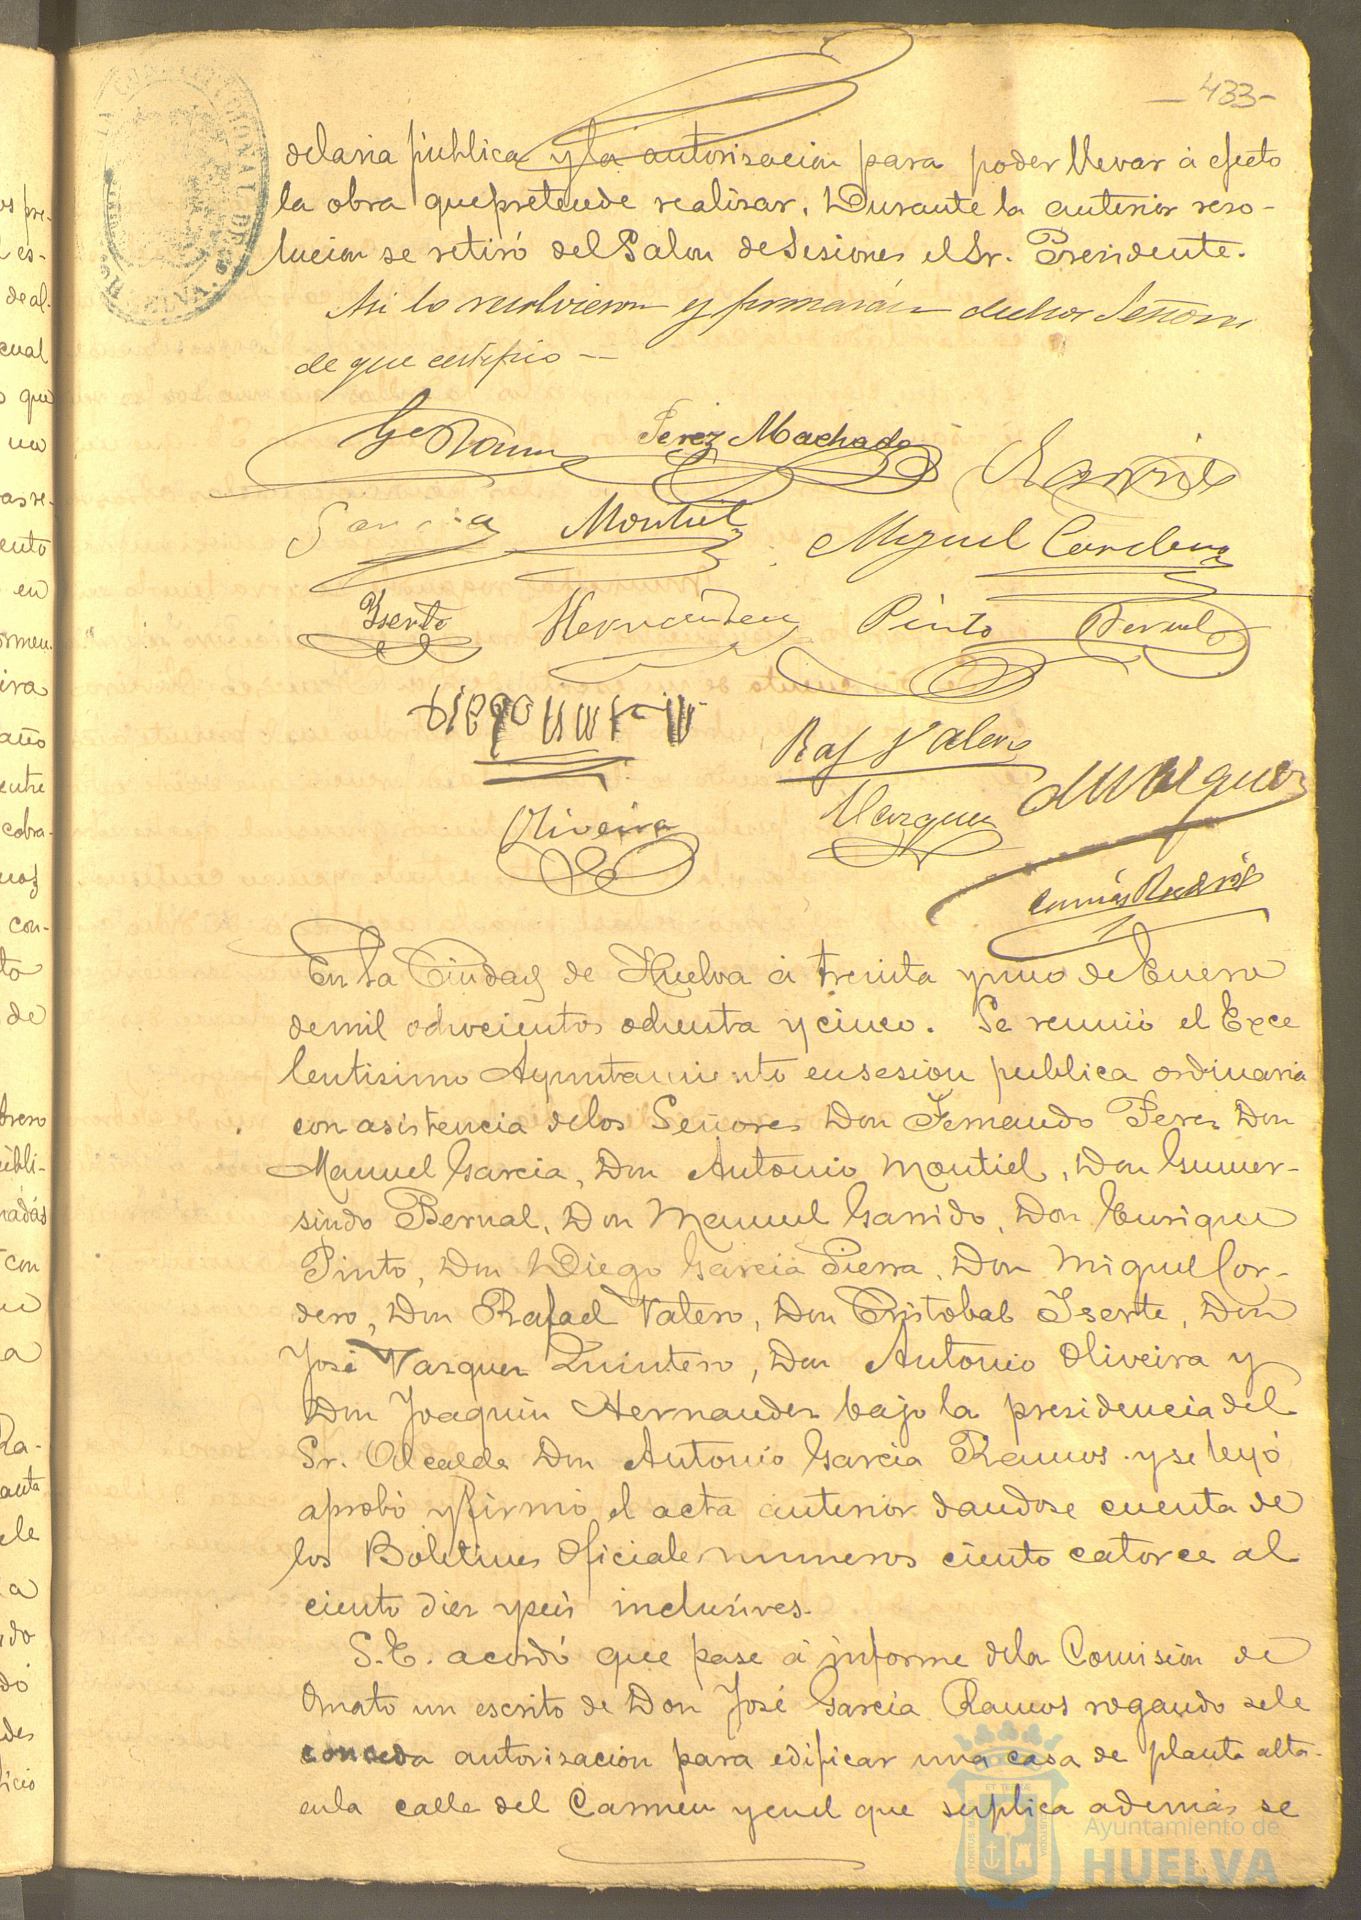 -433-
delaria pública y la autorisacion para poder llevar á efecto
la obra que pretende realisar. Durante la anterior reso-
lucion se retiró del Salon de Sesiones el Sr. Presidente.
Asi lo resolvieron y firmarán dichos Señores
de que certifico --
Ga Ramos Perez Machado Garrido
Garcia Montiel Miguel Cordero
Yserte Hernandez Pinto Bernal
Diego
Raf Valero
Oliveira Vazquez
En la Ciudad de Huelva á treinta y uno de Enero
de mil odhocientos odhenta y cinco. Se reunió el Exce
lentisimo Ayuntamiento en sesion publica ordinaria
con asistencia de los Señores Don Fernando Perez Don
Manuel Garcia, Don Antonio Montiel, Don Gumer-
sindo Bernal, Don Manuel Garrido, Don Enrique
Pinto, Don Diego Garcia Sierra, Don Miguel Cor-
dero, Don Rafael Valero, Don Cristobal Iserte, Don
José Vazquez Quintero, Don Antonio Oliveira y
Don Joaquin Hernandez bajo la presidencia del
Sr. Alcalde Don Antonio Garcia Ramos y se leyó
aprobó y firmó el acta anterior dandose cuenta de
los Boletines Oficiales numeros ciento catorce al
ciento diez y seis inclusives.
S.E. acordó que pase á informe de la Comision de
Ornato un escrito de Don José Garcia Ramos rogando sele
conceda autorizacion para edificar una casa de planta alta
en la calle del Carmen y en el que suplica además se
Ayuntamiento de
HUELVA